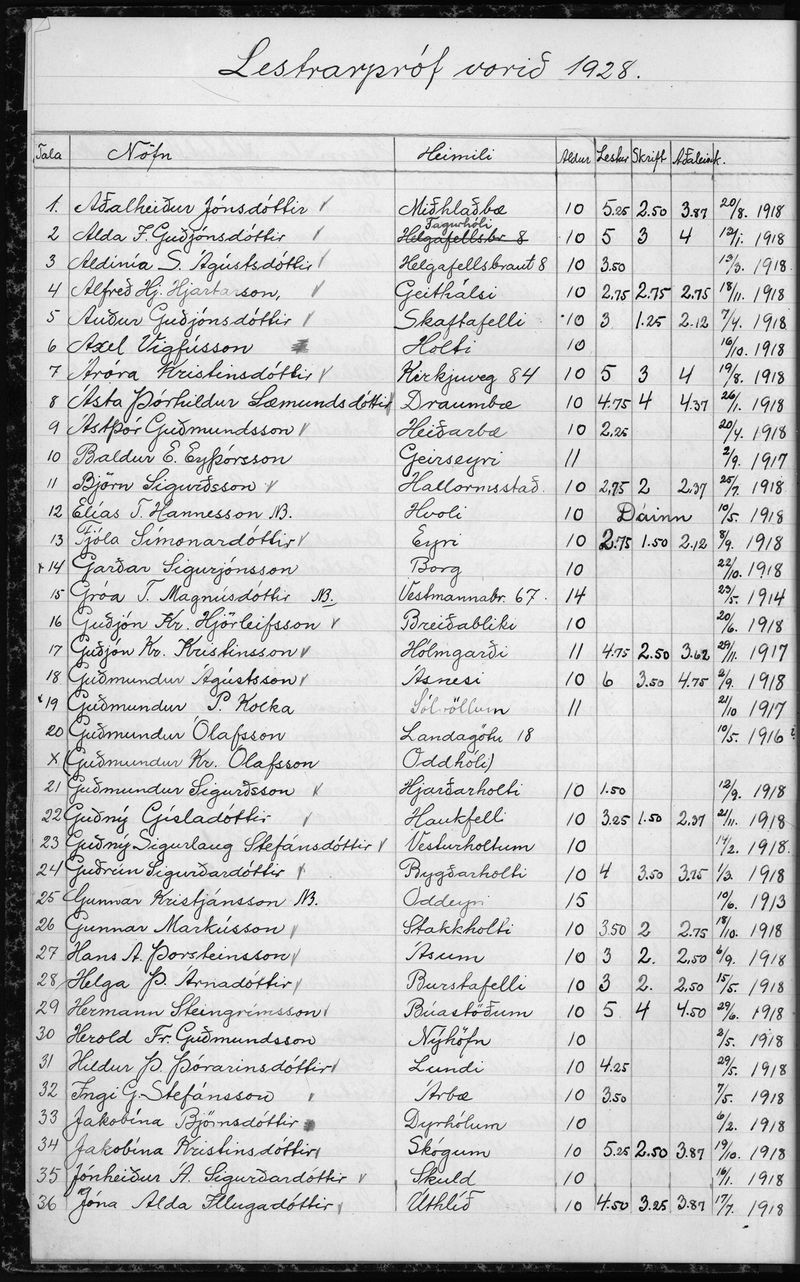 Lestrarpróf vorið 1928.
Tala Nöfn Heimili Aldur Lestur Skrift Aðaleink.
1. Aðalheiður Jónsdóttir √ Miðhlaðbæ 10 5.25 2.50 3.87 20/8. 1918
Fagurhóli
2 Alda F. Guðjónsdóttir √ Helgafellsbr 8 10 5 3 4 12/1. 1918
3 Aldinía S. Ágústsdóttir √ Helgafellsbraut 8 10 3.50 13/3. 1918
4 Alfreð Hj. Hjartarson, √ Geithálsi 10 2.75 2.75 2.75 18/11. 1918
5 Auður Guðjónsdóttir √ Skaftafelli 10 3 1.25 2.12 7/4. 1918
6 Axel Vigfússon Holti 10 16/10. 1918
7 Áróra Kristinsdóttir √ Kirkjuveg 84 10 5 3 4 19/8. 1918
8 Ásta Þórhildur Sæmundsdóttir √ Draumbæ 10 4.75 4 4.37 26/1. 1918
9 Ástþór Guðmundsson √ Heiðarbæ 10 2.25 20/4. 1918
10 Baldur E. Eyþórsson Geirseyri 11 2/9. 1917
11 Björn Sigurðsson √ Hallormsstað. 10 2,75 2 2.37 25/7. 1918
12 Elías T. Hannesson NB. Hvoli 10 Dáinn 10/5. 1918
13 Fjóla Símonardóttir √ Eyri 10 2.75 1.50 2.12 8/9. 1918
+14 Garðar Sigurjónsson Borg 10 22/10. 1918
15 Gróa T. Magnúsdóttir NB. Vestmannabr. 67. 14 23/5. 1914
16 Guðjón Kr. Hjörleifsson √ Breiðabliki 10 20/6. 1918
17 Guðjón Kr. Kristinsson √ Hólmgarði 11 4.75 2.50 3.62 29/11. 1917
18 Guðmundur Ágústsson √ Ásnesi 10 6 3.50 4.75 2/9. 1918
x19 Guðmundur P. Kolka Sólvöllum 11 21/10 1917
20 Guðmundur Ólafsson Landagötu 18 10/5. 1916 ?
x (Guðmundur Kr. Ólafsson Oddhóli)
21 Guðmundur Sigurðsson √ Hjarðarholti 10 1.50 12/9. 1918
22 Guðný Gísladóttir √ Haukfelli 10 3.25 1.50 2.37 21/11. 1918
23 Guðný Sigurlaug Stefánsdóttir √ Vesturholtum 10 14/2. 1918.
24 Guðrún Sigurðardóttir √ Bygðarholti 10 4 3.50 3.75 1/3. 1918
25 Gunnar Kristjánsson NB. Oddeyri 15 10/6. 1913
26 Gunnar Markússon √ Stakkholti 10 3.50 2 2.75 18/10. 1918
27 Hans A. Þorsteinsson √ Ásum 10 3 2. 2.50 6/9. 1918
28 Helga Þ. Árnadóttir √ Burstafelli 10 3 2. 2,50 15/5. 1918
29 Hermann Steingrímsson √ Búastöðum 10 5 4 4.50 29/6. 1918
30 Herold Fr. Guðmundsson Nýhöfn 10 2/5. 1918
31 Hildur Þ. Þórarinsdóttir √ Lundi 10 4.25 29/5. 1918
32 Ingi G. Stefánsson √ Árbæ 10 3.50 7/5. 1918
33 Jakobína Björnsdóttir Dyrhólum 10 6/2. 1918
34 Jakobína Kristinsdóttir √ Skógum 10 5.25 2.50 3.87 19/10. 1918
35 Jónheiður Á. Sigurðardóttir √ Skuld 10 16/1. 1918
36 Jóna Alda Illugadóttir √ Úthlíð 10 4.50 3.25 3.87 17/7. 1918